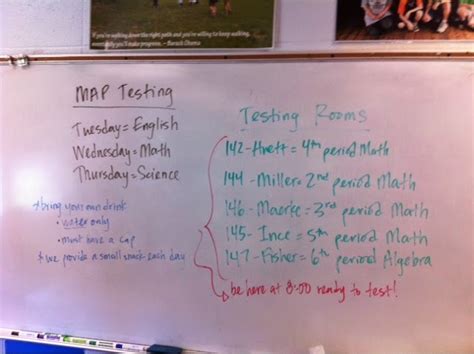 If you're walking down the right path and you're willing to keep walking,
eventually you'll make progress. — Barack Obama
MAP Testing
Tuesday = English
Wednesday = Math
Thursday = Science
* bring your own drink
• water only
• must have a cap
* we provide a small snack each day
Testing Rooms
142 - = 4th period Math
144 - Miller = 2nd period Math
146 - = 3rd period Math
145 - Ince = 5th period Math
147 - Fisher = 6th period Algebra
be here at 8:00 ready to test!